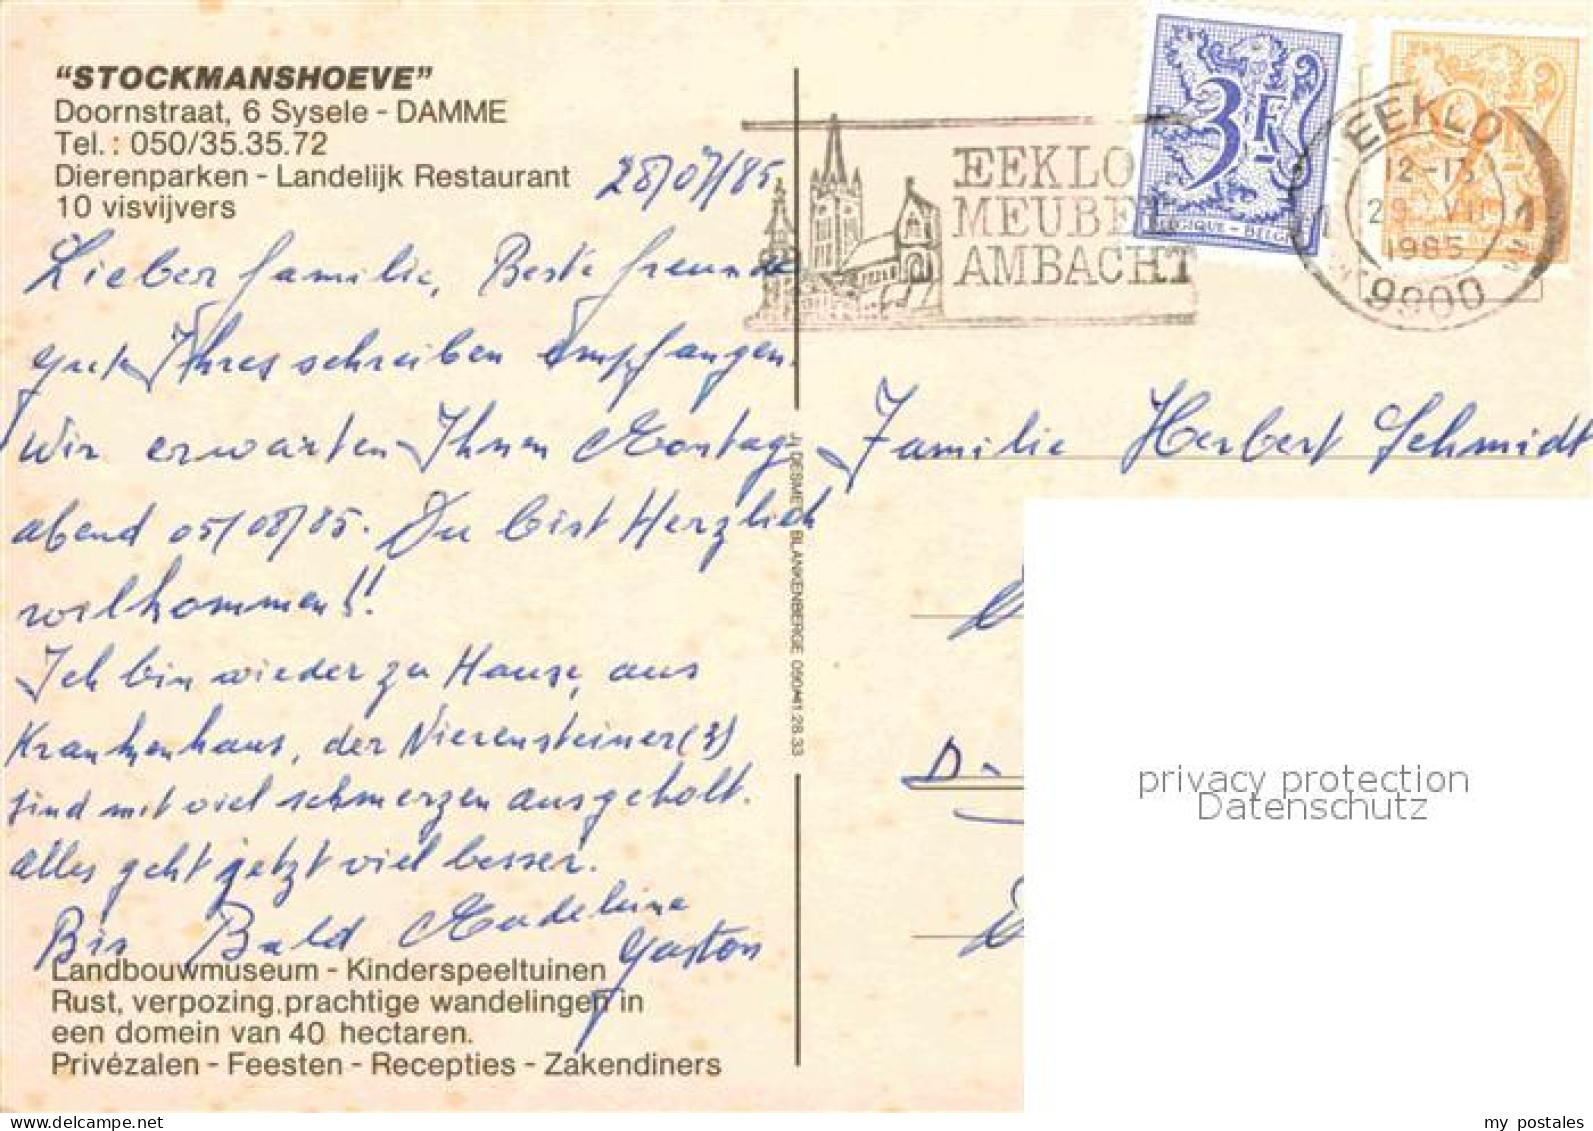 "STOCKMANSHOEVE"
Doornstraat, 6 Sysele - DAMME
Tel.: 050/35.35.72
Dierenparken - Landelijk Restaurant
10 visvijvers
28/07/85
Lieber familie, Beste freunde
gut Ihres schreiben Empfangen.
Wir erwarten Ihnen Montag
abend 05/08/85. Du bist Herzlich
wilkommen!!
Ich bin wieder zu Hause, aus
Krankenhaus, der Nierensteiner (3)
sind mit viel schmerzen ausgeholt.
alles geht jetzt viel besser.
Bis Bald Madeleine
Gaston
Landbouwmuseum - Kinderspeeltuinen
Rust, verpozing, prachtige wandelingen in
een domein van 40 hectaren.
Privézalen - Feesten - Recepties - Zakendiners
DESMET BLANKENBERGE 050/41.28.33
EEKLO
MEUBEL
AMBACHT
3F
BELGIQUE - BELGIË
9F
EEKLO 1
12-13
29 VII
1985
9900
Familie Herbert Schmidt
D-
privacy protection
Datenschutz
delcampe.net
my_postales